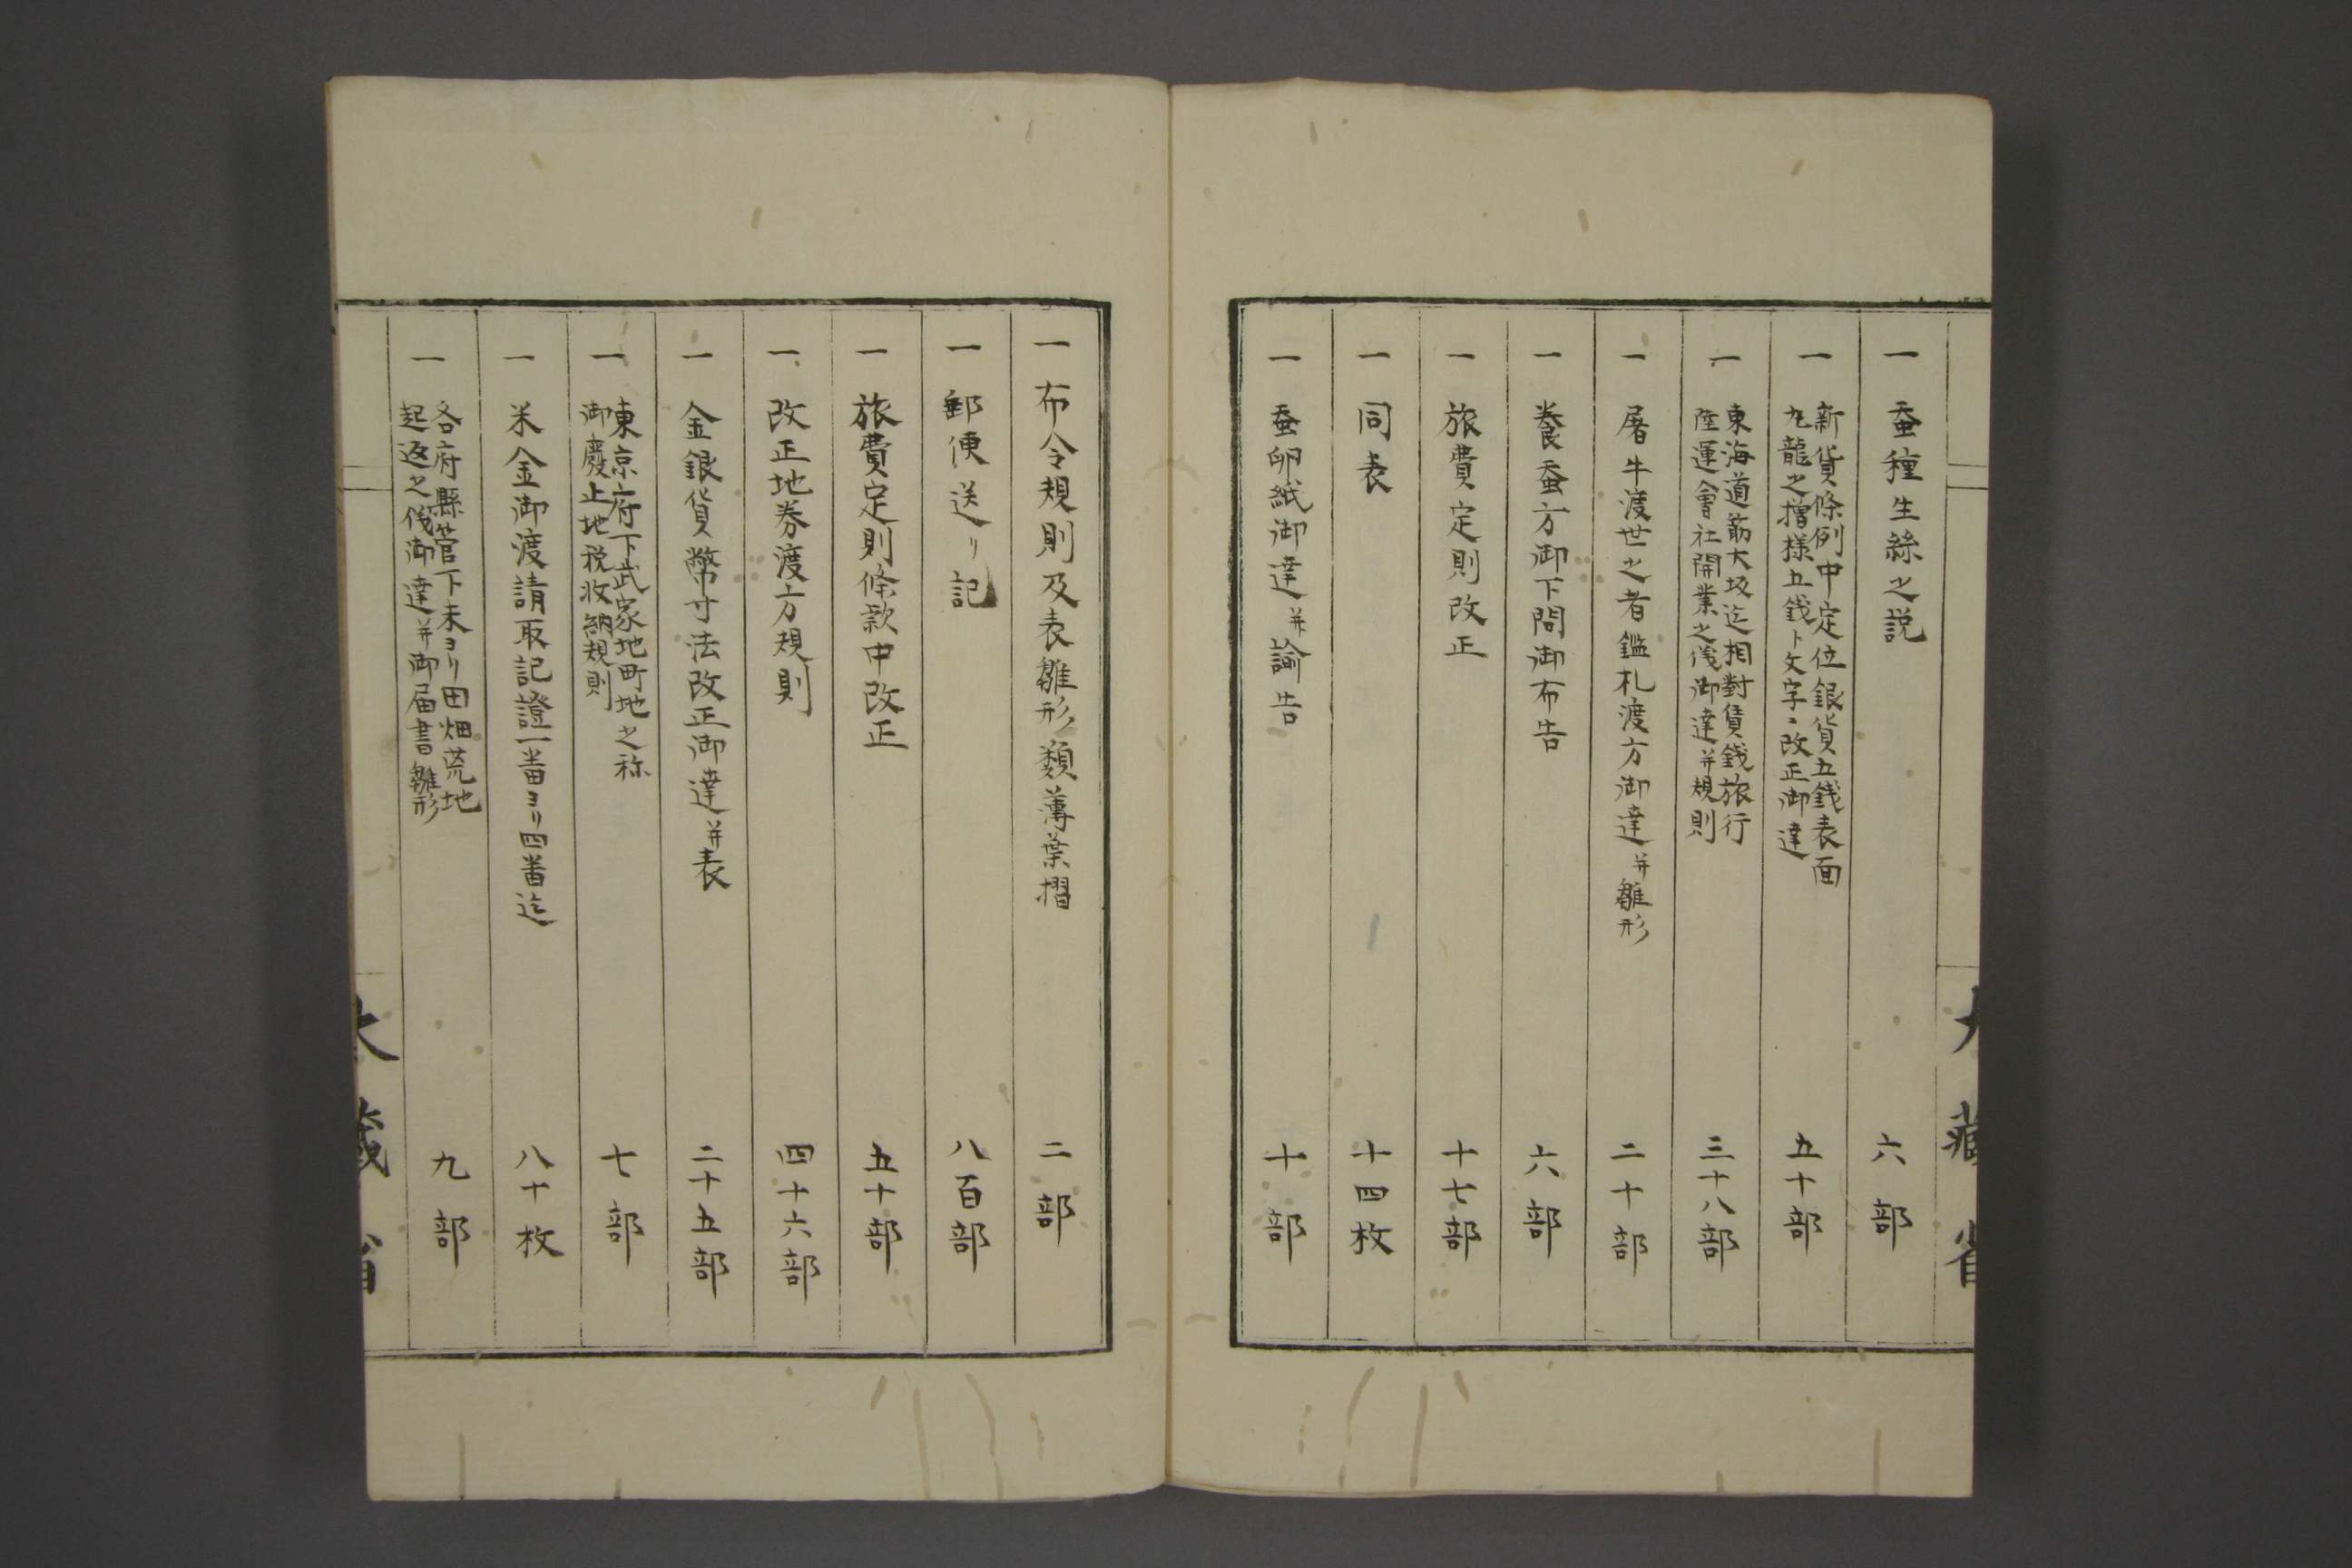 一 蚕種生絲之説 六部
一 新貨條例中定位銀貨五錢表面
九龍之摺様五錢ト文字ニ改正御達 五十部
一 東海道筋大坂迄相對賃錢旅行
陸運會社開業之儀御達并規則 三十八部
一 屠牛渡世之者鑑札渡方御達并雛形 二十部
一 養蚕方御下問御布告 六部
一 旅費定則改正 十七部
一 同表 十四枚
一 蚕卵紙御達并諭告 十部
大藏省
一 布令規則及表雛形類薄葉摺 二部
一 郵便送リ記 八百部
一 旅費定則條款中改正 五十部
一 改正地券渡方規則 四十六部
一 金銀貨幣寸法改正御達并表 二十五部
一 東京府下武家地町地之称
御廢止地税收納規則 七部
一 米金御渡請取記證一番ヨリ四番迄 八十枚
一 各府縣管下未ヨリ田畑荒地
起返之儀御達并御届書雛形 九部
大藏省